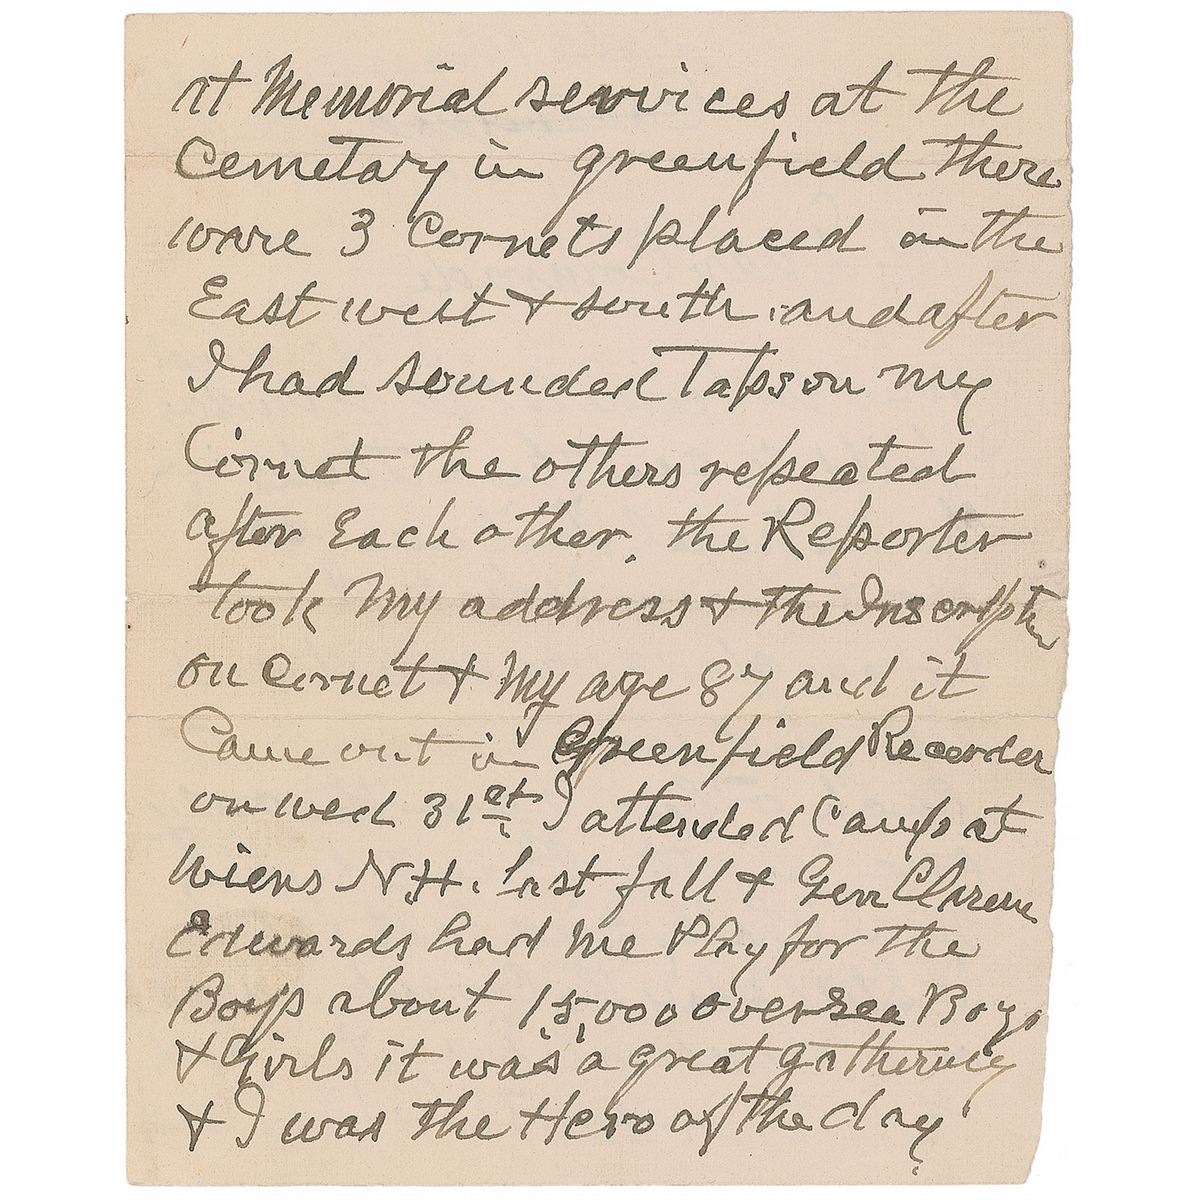 at Memorial services at the
Cemetary in greenfield there
ware 3 Cornets placed in the
East west & south. and after
I had sounded Taps on my
Cornet the others repeated
after Each other. the Reporter
took My address & the Inscription
on Cornet & My age 87 and it
Came out in Greenfield Recorder
on wed 31st I attended Camp at
N.H. last fall & Gen Clarence
Edwards had me Play for the
Boys about 15,000 oversea Boys
& Girls it was a great gathering
& I was the Hero of the day.